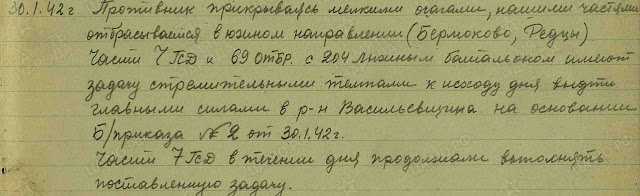 30.1.42г Противник прикрываясь мелкими очагами, нашими частями
отбрасывается в южном направлении (Бермоково, Редцы)
Части 7 ГсД и 69 Отбр. с 204 лыжным батальоном имеют
задачу стремительными темпами к исходу дня выдти
главными силами в р-н Васильевщина на основании
Б/приказа №2 от 30.1.42г.
Части 7 ГсД в течении дня продолжали выполнять
поставленную задачу.